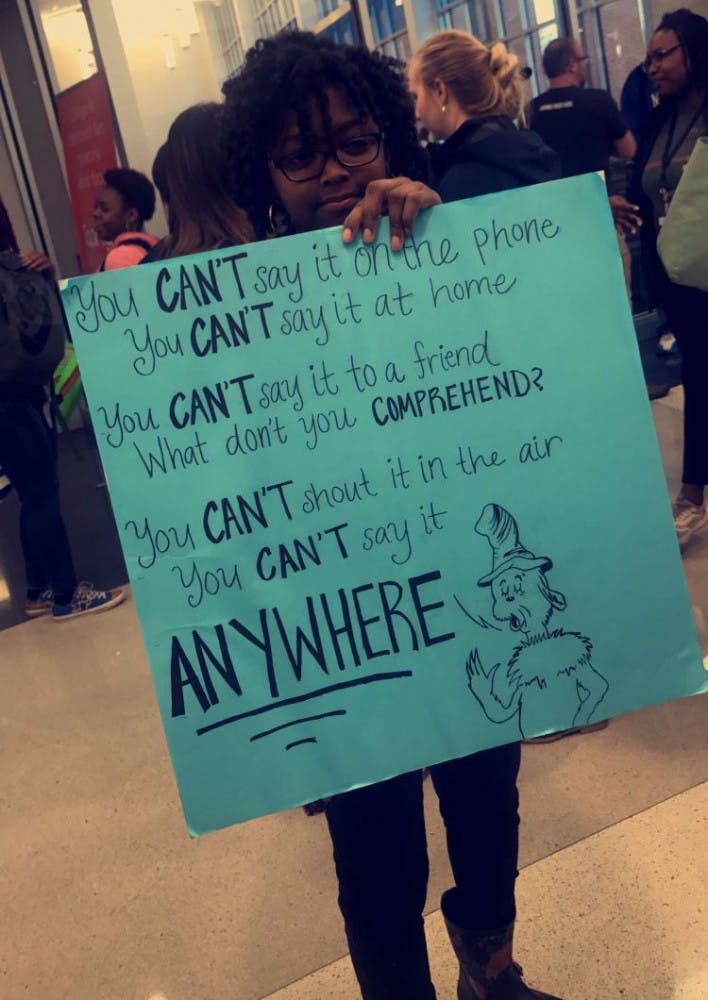 You CAN'T say it on the phone
You CAN'T say it at home
You CAN'T say it to a friend
What don't you COMPREHEND?
You CAN'T shout it in the air
You CAN'T say it
ANYWHERE